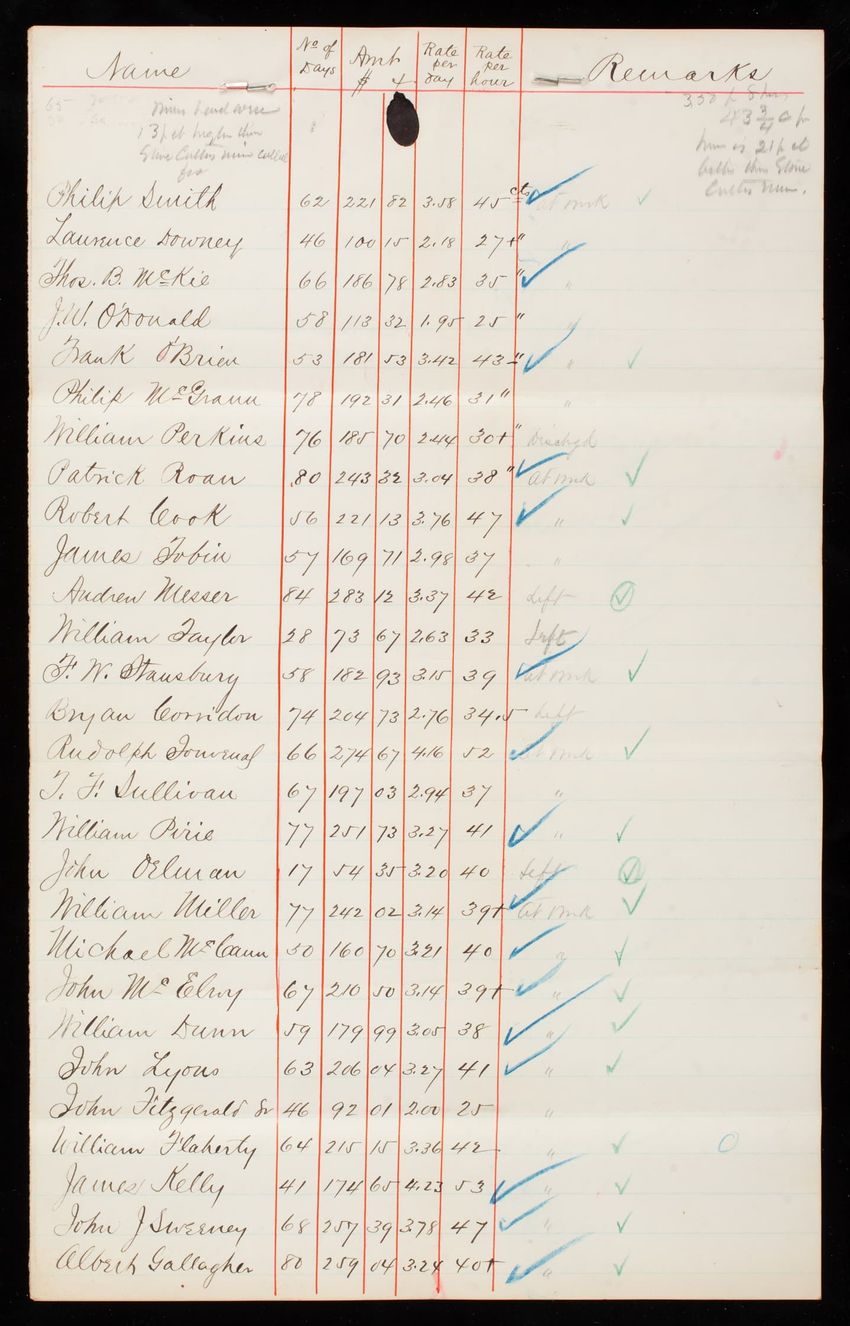 Name Nº of Days Amt $ ¢ Rate per day Rate per hour Remarks
3.50 p 8 hrs
43 3/4 c p
mine hand were
13 p ct higher than
Stone Cutters mine
for
hum is 21 p ct
better than Stone
Cutters mine.
Philip Smith 62 221 82 3.58 45 cts at work ✓
Laurence Downey 46 100 15 2.18 27+ " "
Thos. B. McKie 66 186 78 2.83 35 " "
J.W. O'Donald 58 113 32 1.95 25 " "
Frank O'Brien 53 181 53 3.42 43- " " ✓
Philip McGrann 78 192 31 2.46 31 " "
William Perkins 76 185 70 2.44 30+ " Dischgd
Patrick Roan 80 243 32 3.04 38 " at work ✓
Robert Cook 56 221 13 3.76 47 " ✓
James Tobin 57 169 71 2.98 37 "
Andrew Messer 84 283 12 3.37 42 Left ✓
William Taylor 28 73 67 2.63 33 Left
F. W. Stansbury 58 182 93 3.15 39 at work ✓
Bryan Corridon 74 204 73 2.76 34.5 Left
Rudolph Jouvenal 66 274 67 4.16 52 at work ✓
T. F. Sullivan 67 197 03 2.94 37 "
William Pirie 77 251 73 3.27 41 " ✓
John Oelman 17 54 35 3.20 40 Left ✓
William Miller 77 242 02 3.14 39+ at work ✓
Michael McCann 50 160 70 3.21 40 " ✓
John McElroy 67 210 50 3.14 39+ " ✓
William Dunn 59 179 99 3.05 38 " ✓
John Lyons 63 206 04 3.27 41 " ✓
John Fitzgerald Sr 46 92 01 2.00 25 "
William Flaherty 64 215 15 3.36 42 " ✓
James Kelly 41 174 65 4.23 53 " ✓
John J Sweeney 68 257 39 3.78 47 " ✓
Albert Gallagher 80 259 04 3.24 40+ " ✓